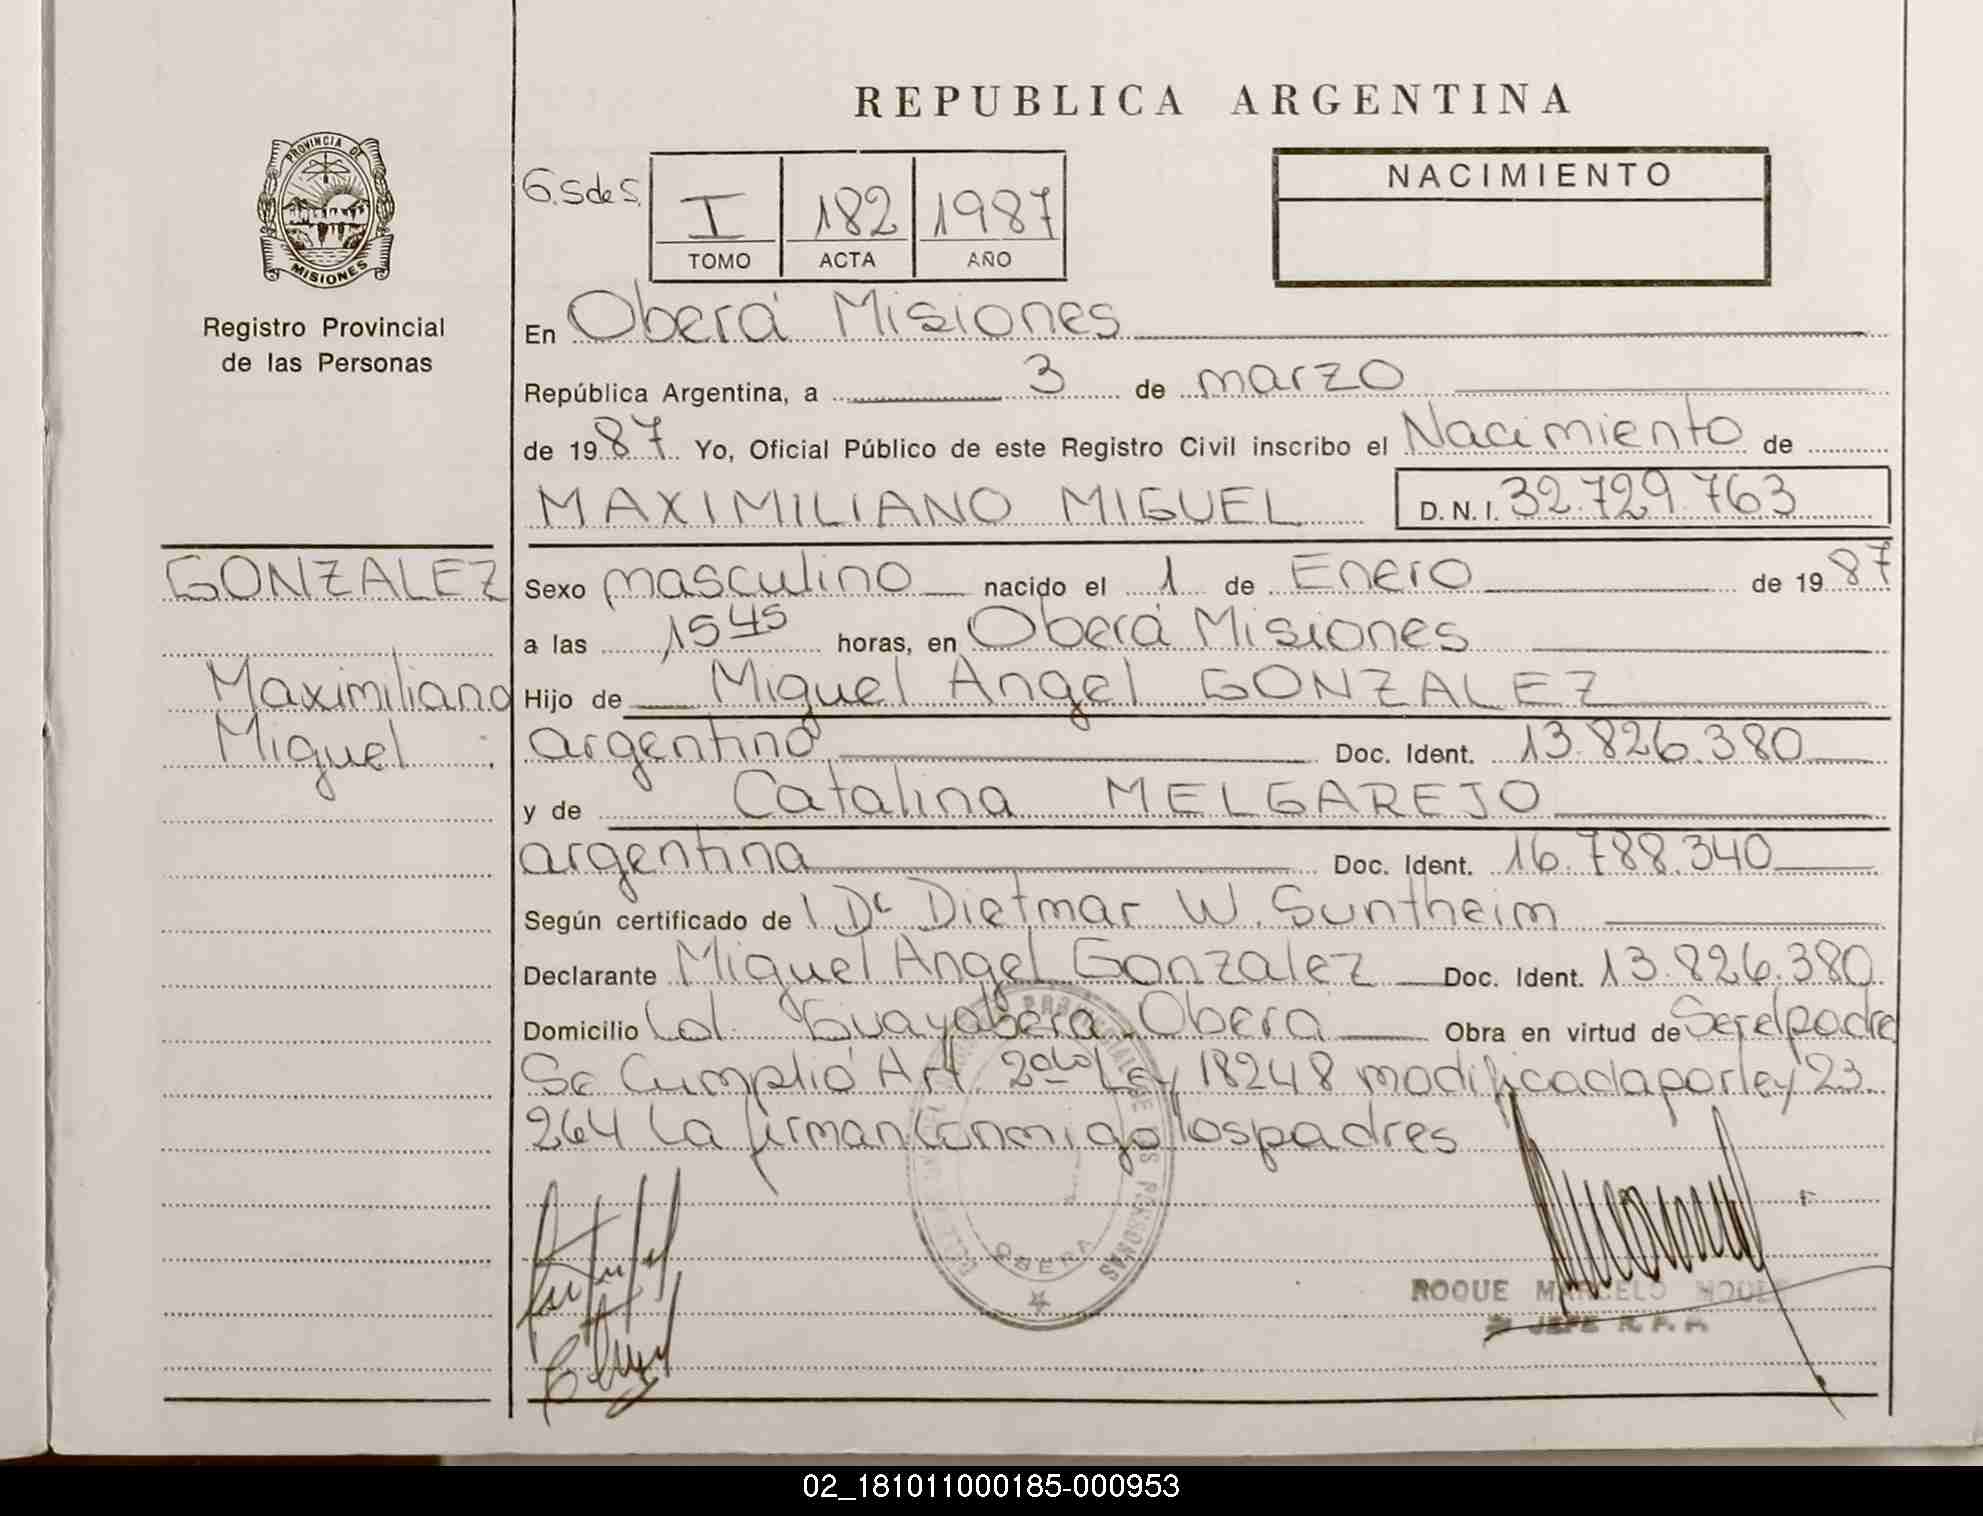 REPUBLICA ARGENTINA
PROVINCIA DE
MISIONES
Registro Provincial
de las Personas
I 182 1987
TOMO ACTA AÑO
NACIMIENTO
En Oberá Misiones
República Argentina, a 3 de marzo
de 1987 Yo, Oficial Público de este Registro Civil inscribo el Nacimiento de
MAXIMILIANO MIGUEL D.N.I. 32.729.763
GONZALEZ
Maximiliano
Miguel
Sexo masculino nacido el 1 de Enero de 1987
a las 15 45 horas, en Oberá Misiones
Hijo de Miguel Angel GONZALEZ
argentino Doc. Ident. 13.826.380
y de Catalina MELGAREJO
argentina Doc. Ident. 16.788.340
Según certificado de Dietmar W. Suntheim
Declarante Miguel Angel Gonzalez Doc. Ident. 13.826.380
Domicilio Col. Guayabera Oberá Obra en virtud de Ser el padre
Se Cumplió Art 2do Ley 18248 modificada por ley 23.
264 La firman Conmigo los padres
OBERA
ROQUE MARCELO
JEFE R. P. P.
02_181011000185-000953